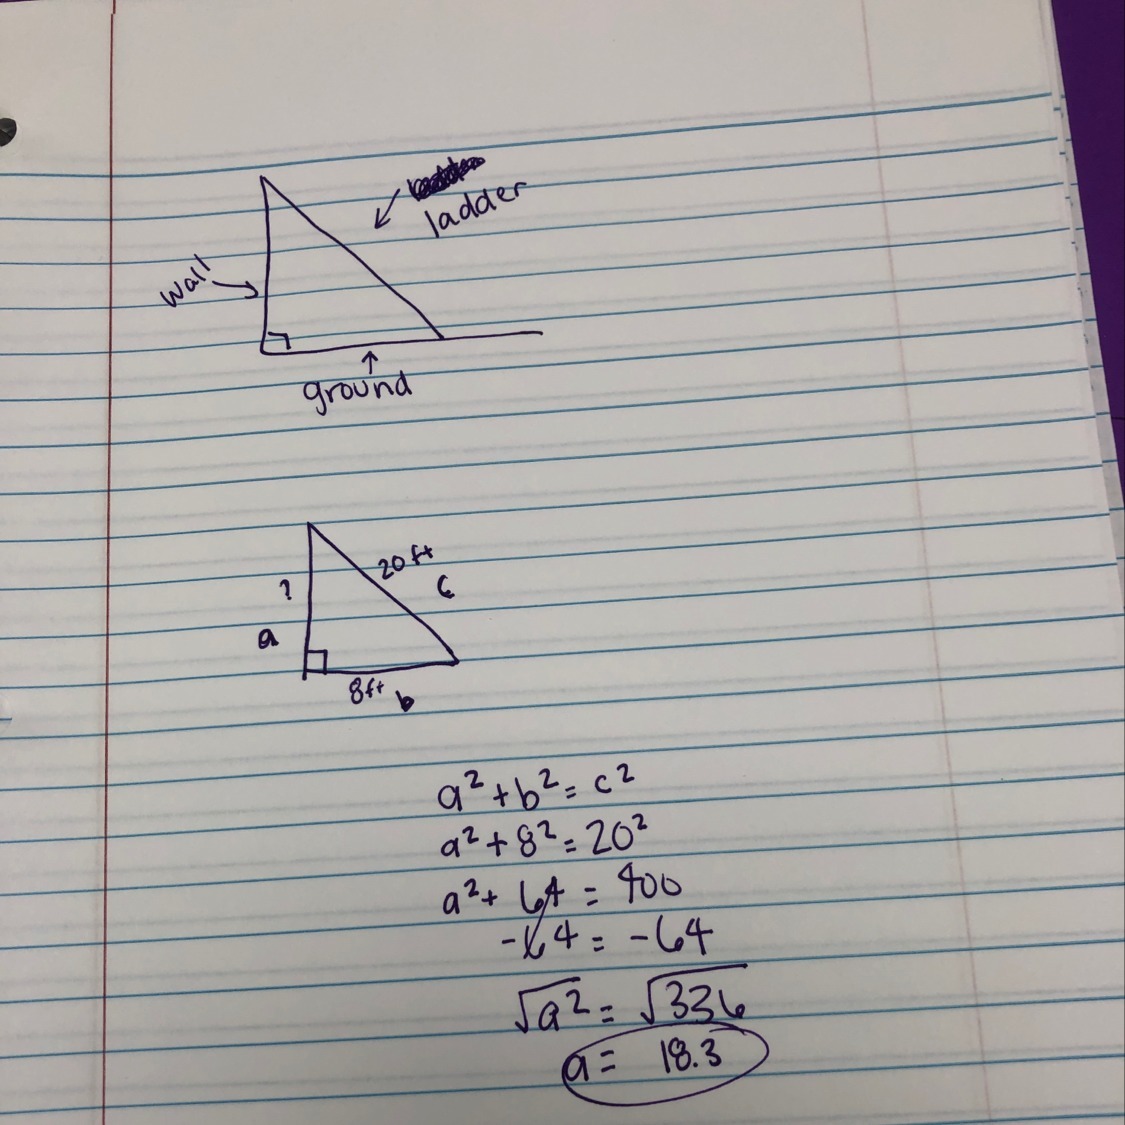 ladder
wall
ground
20 ft
?
c
a
8ft
b
a² + b² = c²
a² + 8² = 20²
a² + 64 = 400
-64 = -64
√a² = √336
a = 18.3